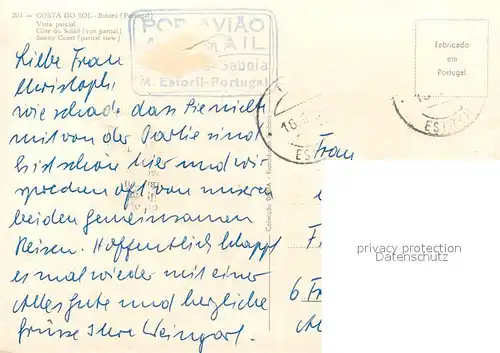 203 — COSTA DO SOL - Estoril (Portugal)
Vista parcial
Côte du Soleil (vue partiel)
Sunny Coast (partial view)
POR AVIÃO
MAIL
Saboia
M. Estoril-Portugal
Fabricado
em
Portugal
16
16
Liebe Frau
Christoph,
wie schade dass Sie nicht
mit von der Partie sind
Es ist schön hier und wir
sprechen oft von unseren
beiden gemeinsamen
Reisen. Hoffentlich klappt
es mal wieder mit einer
Alles gute und herzliche
grüsse Ihre Weingart.
Frau
F
6 Fr
Al
privacy protection
Datenschutz